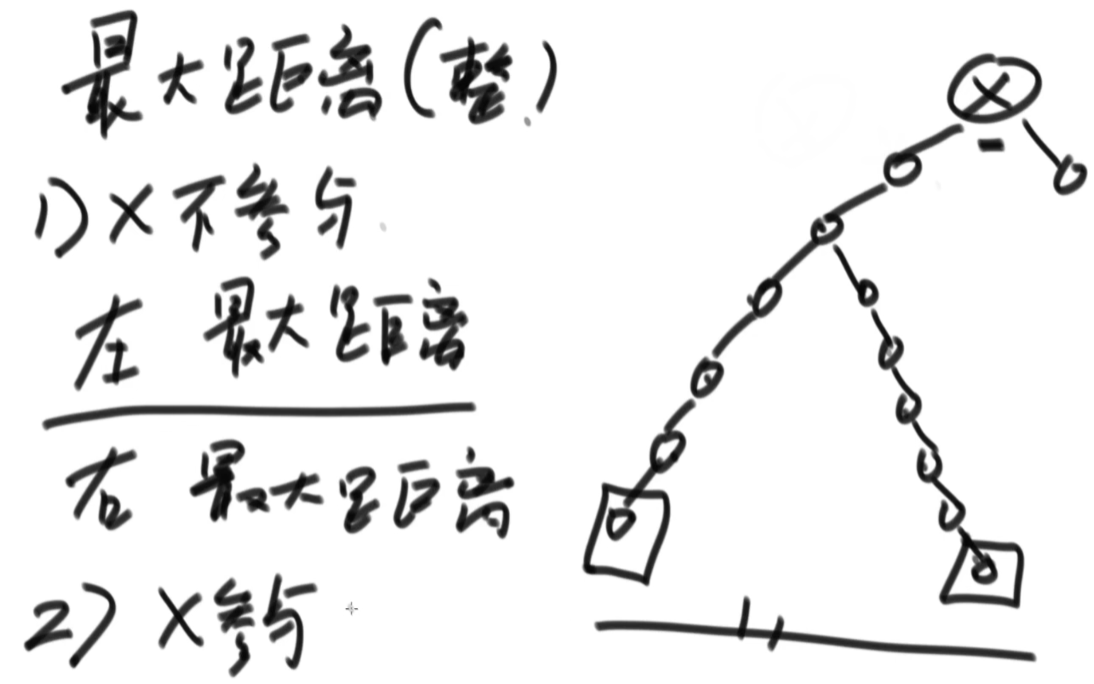 最大距离(整)
1) X 不参与
左 最大距离
右 最大距离
2) X参与
X